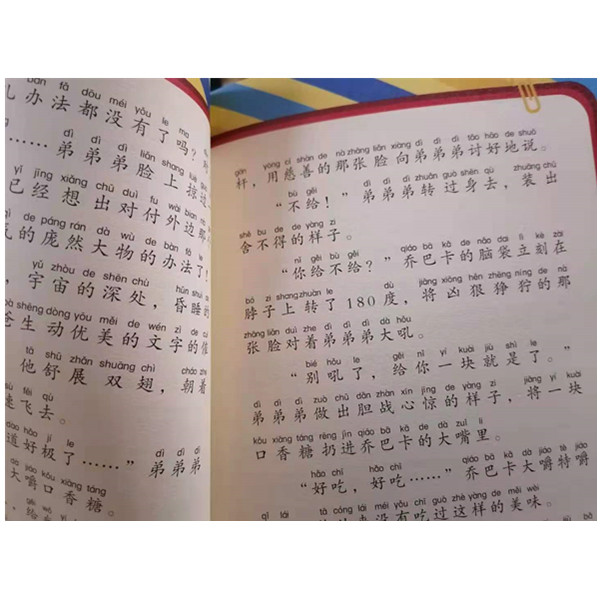 bàn fǎ dōu méi yǒu le ma
办法都没有了吗？
dì dì dì liǎn shang
……弟弟弟脸上掠
yǐ jīng xiǎng chū duì fu wài biān nà
已经想出对付外边那
de páng rán dà wù de bàn fǎ le
的庞然大物的办法了！
yǔ zhòu de shēn chù hūn shuì
，宇宙的深处，昏睡
shēng dòng yōu měi de wén zì de cuī
生动优美的文字的催
tā shū zhǎn shuāng chì cháo zhe
他舒展双翅，朝着
sù fēi qù
速飞去。
dào hǎo jí le dì dì
道好极了……”弟弟弟
dà jiáo kǒu xiāng táng
大嚼口香糖。
gěi
，给
gān yòng cí shàn de nà zhāng liǎn xiàng dì dì dì tǎo hǎo de shuō
杆，用慈善的那张脸向弟弟弟讨好地说。
bù gěi dì dì dì zhuǎn guò shēn qù zhuāng chū
“不给！”弟弟弟转过身去，装出
shě bu de de yàng zi
舍不得的样子。
nǐ gěi bù gěi qiáo bā kǎ de nǎo dai lì kè zài
“你给不给？”乔巴卡的脑袋立刻在
bó zi shang zhuàn le dù jiāng xiōng hěn zhēng níng de nà
脖子上转了180度，将凶狠狰狞的那
zhāng liǎn duì zhe dì dì dì dà hǒu
张脸对着弟弟弟大吼。
bié hǒu le gěi nǐ yí kuài jiù shì le
“别吼了，给你一块就是了。”
dì dì dì zuò chū dǎn zhàn xīn jīng de yàng zi jiāng yí kuài
弟弟弟做出胆战心惊的样子，将一块
kǒu xiāng táng rēng jìn qiáo bā kǎ de dà zuǐ li
口香糖扔进乔巴卡的大嘴里。
hǎo chī hǎo chī qiáo bā kǎ dà jiáo tè jiáo
“好吃，好吃……”乔巴卡大嚼特嚼
qǐ lái tā cóng lái méi yǒu chī guò zhè yàng de měi wèi
来没有吃过这样的美味。